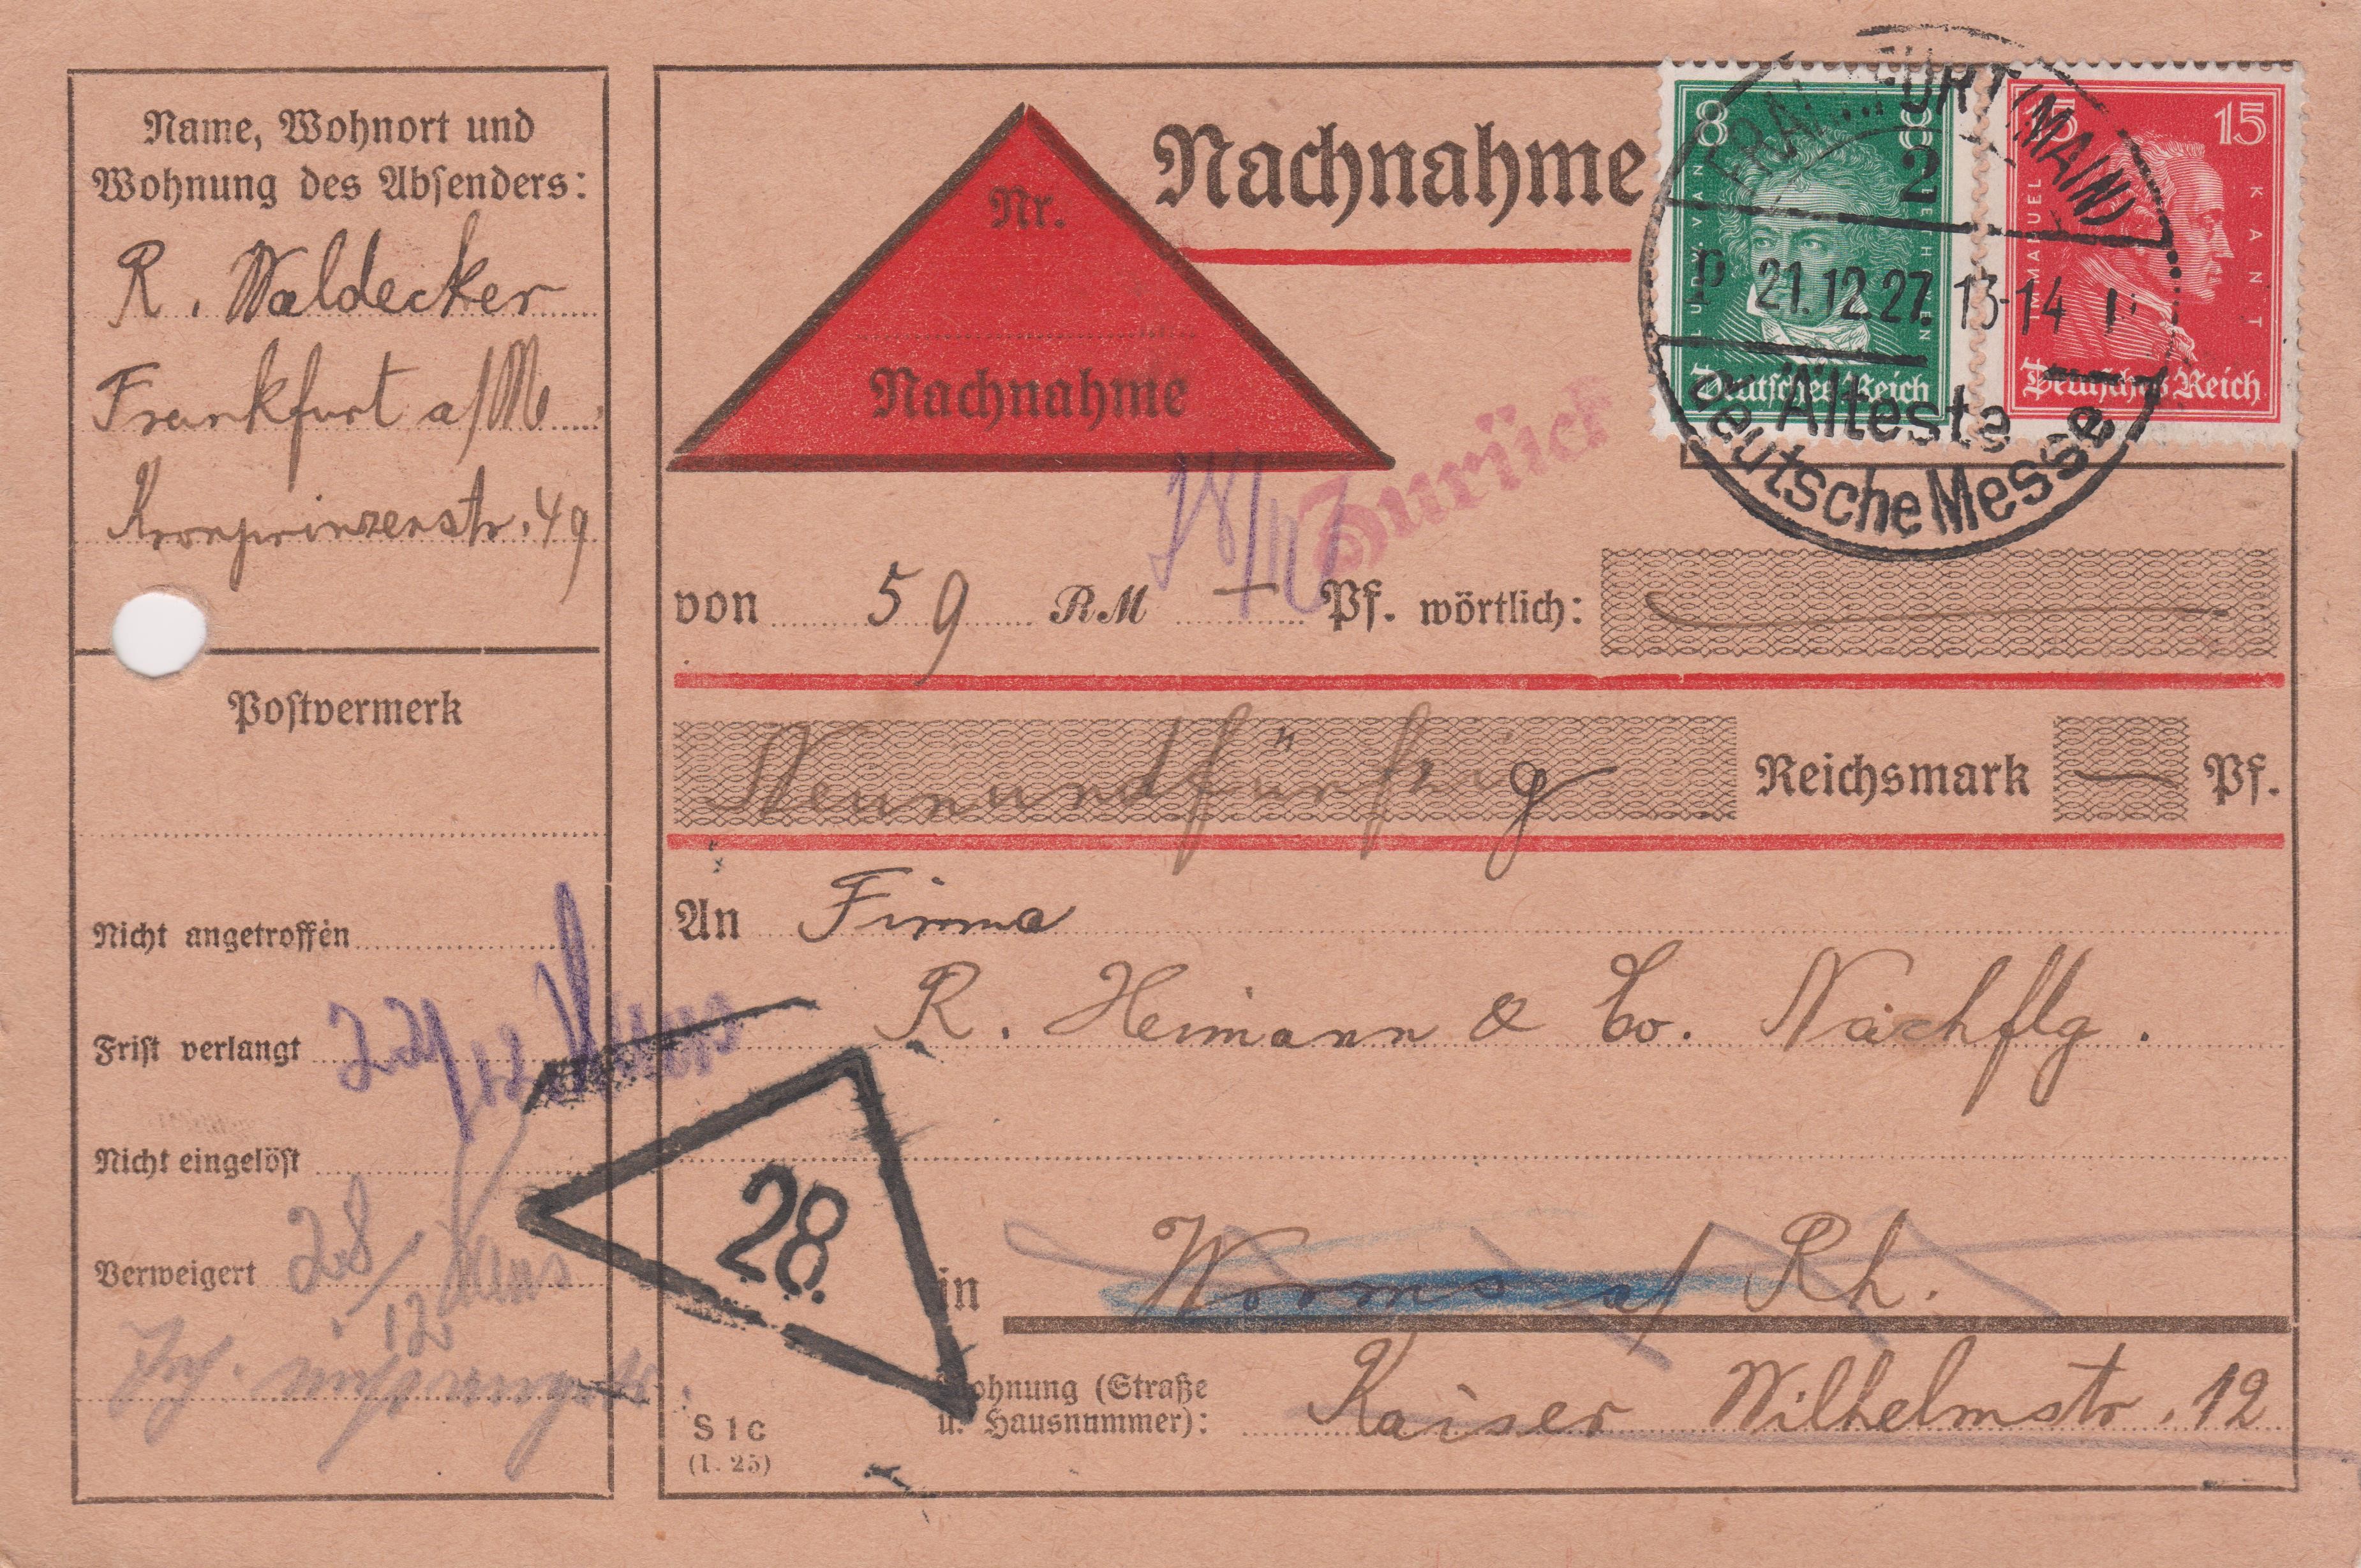 Name, Wohnort und
Wohnung des Absenders:
R. Waldecker
Frankfurt a/M
Kronprinzenstr. 49
Postvermerk
Nicht angetroffen
Frist verlangt 22/12
Nicht eingelöst
Verweigert 28/12
Nr.
Nachnahme
Nachnahme
8 8
LUDW. VAN
Deutsches Reich
15 15
IMMANUEL KANT
Deutsches Reich
FRANKFURT (MAIN)
2
21.12.27. 13-14
Älteste
Deutsche Messe
Zurück
von 59 RM — Pf. wörtlich:
Neunundfünfzig Reichsmark — Pf.
An Firma
R. Heimann & Co. Nachflg.
28.
in Worms a/ Rh.
Wohnung (Straße
u. Hausnummer): Kaiser Wilhelmstr. 12
S 1 c
(1. 25)